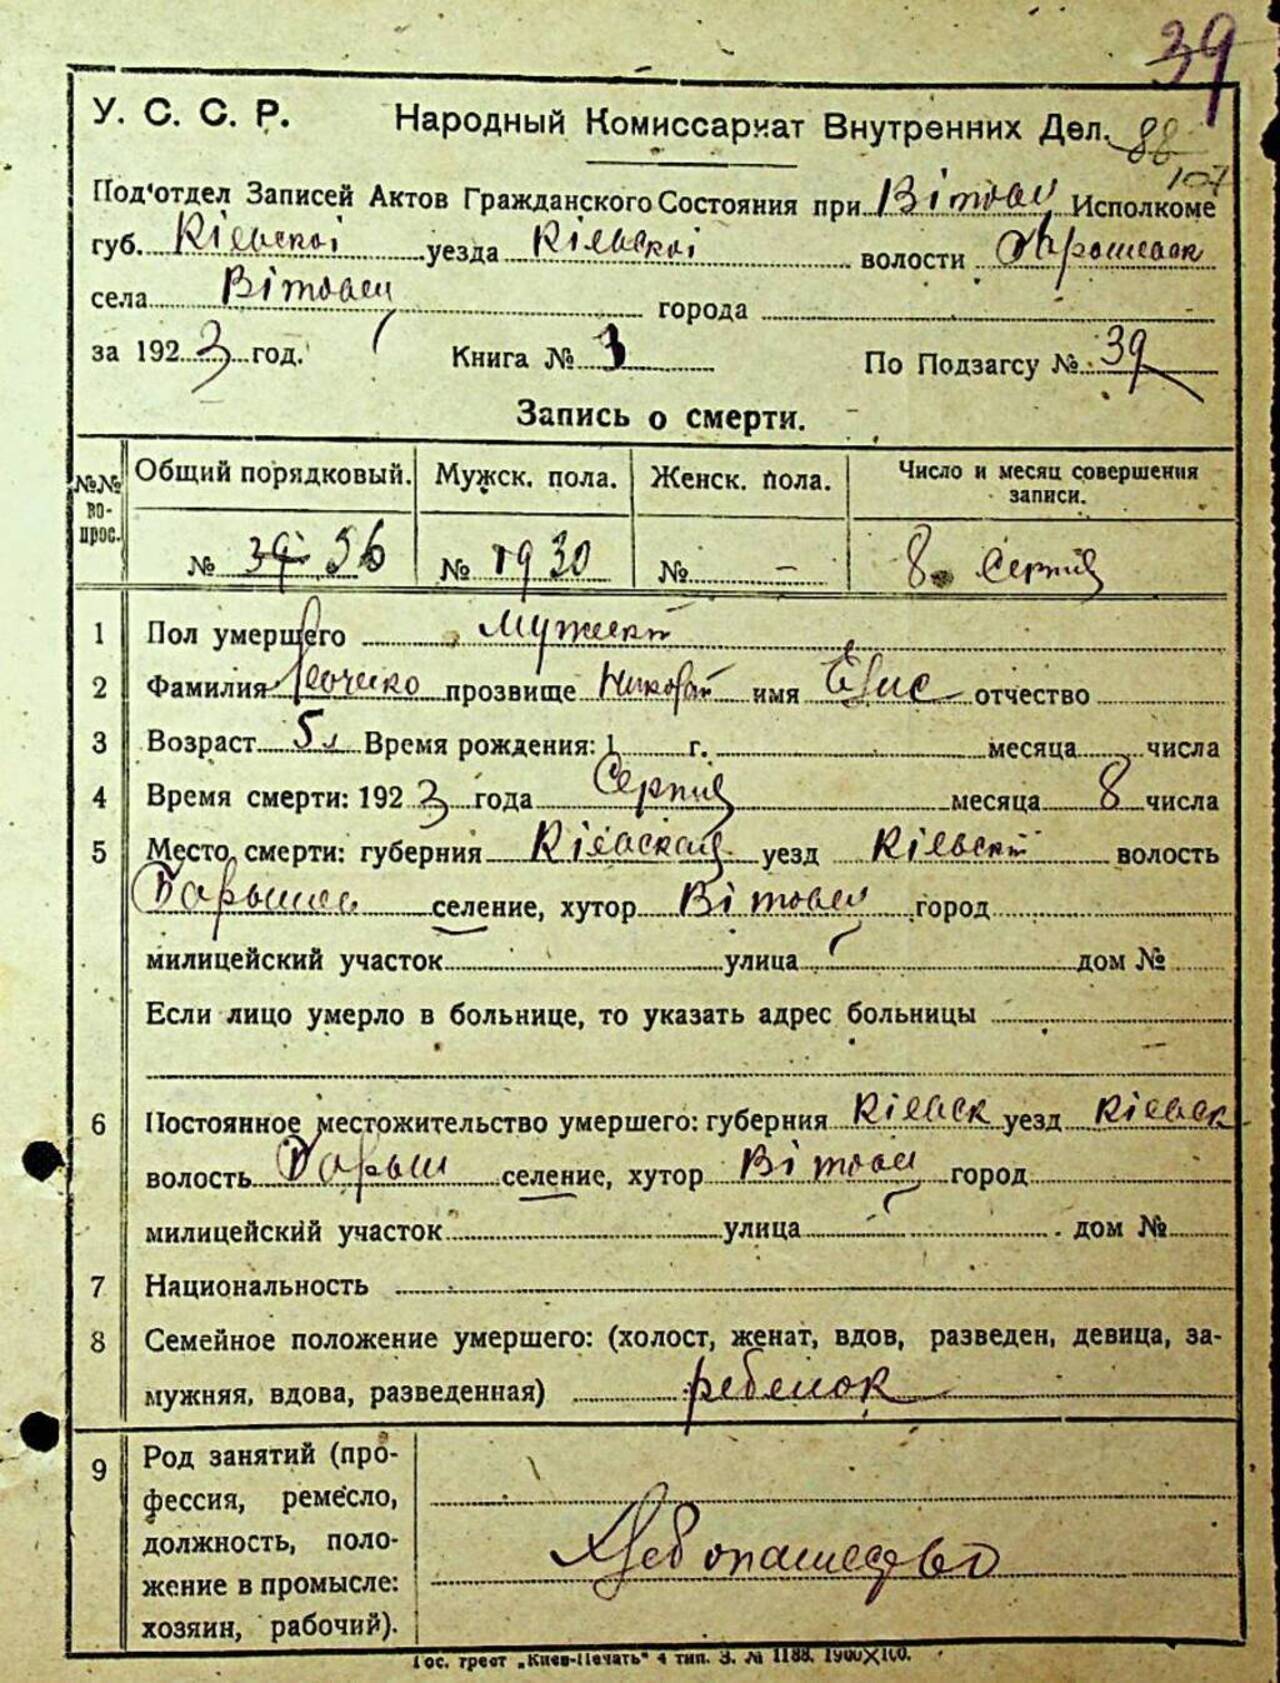 39
У. С. С. Р. Народный Комиссариат Внутренних Дел.
88
107
Под'отдел Записей Актов Гражданского Состояния при Вітовец Исполкоме
губ. Кіевскої уезда Кіевскої волости
села Вітовец города
за 1923 год. Книга № 3 По Подзагсу № 39
Запись о смерти.
№№ вопрос. Общий порядковый. Мужск. пола. Женск. пола. Число и месяц совершения записи.
№ 39 56 № 1930 № - 8 Серпня
1 Пол умершего Мужеск
2 Фамилия прозвище имя отчество
3 Возраст 5 л Время рождения: 1 г. месяца числа
4 Время смерти: 1923 года Серпня месяца 8 числа
5 Место смерти: губерния Кіевская уезд Кіевск волость
Барышев селение, хутор Вітовец город
милицейский участок улица дом №
Если лицо умерло в больнице, то указать адрес больницы
6 Постоянное местожительство умершего: губерния Кіевск уезд Кіевск
волость Барыш селение, хутор Вітовец город
милицейский участок улица дом №
7 Национальность
8 Семейное положение умершего: (холост, женат, вдов, разведен, девица, за-
мужняя, вдова, разведенная) ребенок
9 Род занятий (про-
фессия, ремесло,
должность, поло-
жение в промысле:
хозяин, рабочий).
Хлебопашество
Гос. трест „Киев-Печать" 4 тип. З. № 1188. 1900X100.